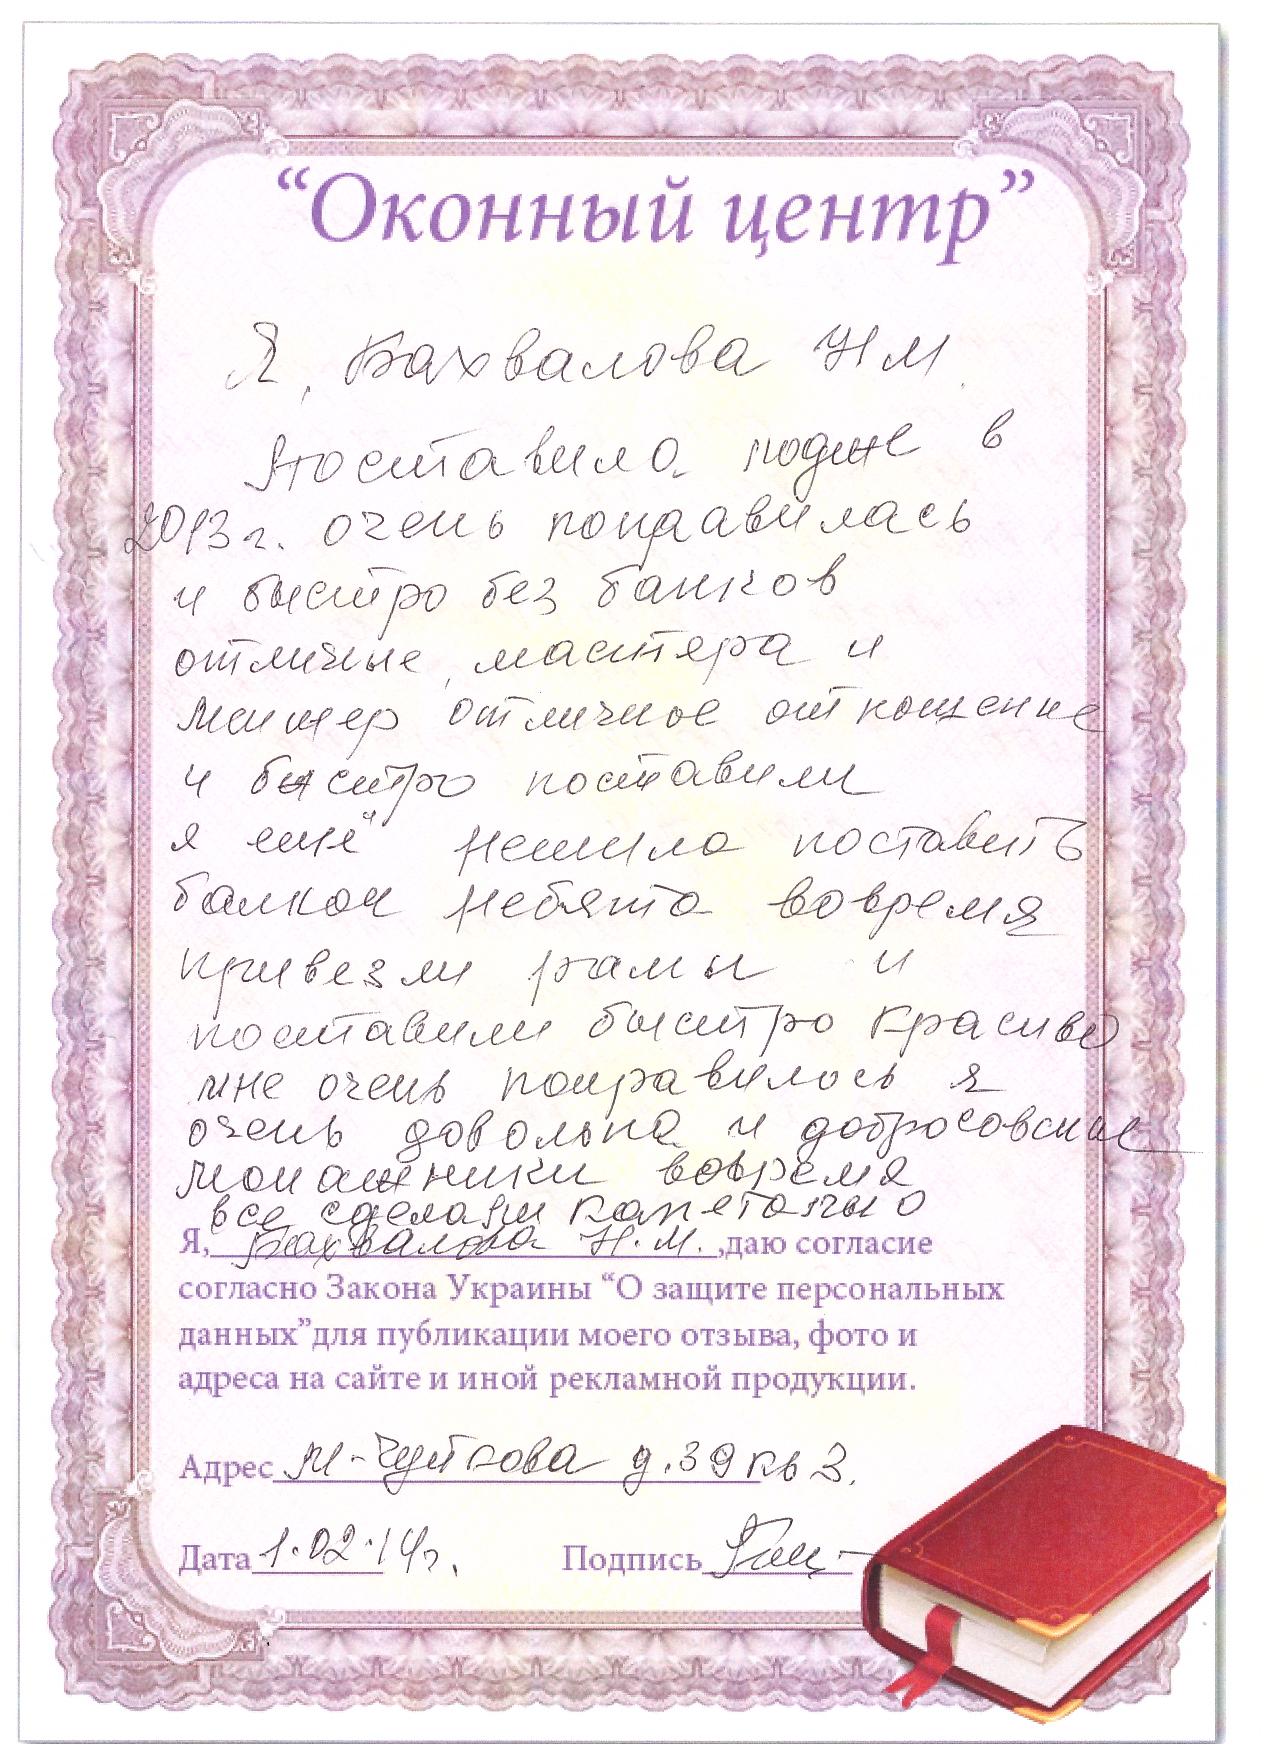 “Оконный центр”
Я, Бахвалова Н М.
Поставила в
2013г. очень понравилась
и быстро без банков
отличные мастера и
отличное отношение
и быстро поставили
я ещё решила поставить
балкон ребята вовремя
привезли рамы и
поставили быстро красиво
мне очень понравилось я
очень довольна и
вовремя
все сделали
Я, Бахвалова Н.М. ,даю согласие
согласно Закона Украины “О защите персональных
данных”для публикации моего отзыва, фото и
адреса на сайте и иной рекламной продукции.
Адрес д.39 кв 3.
Дата 1.02.14г. Подпись